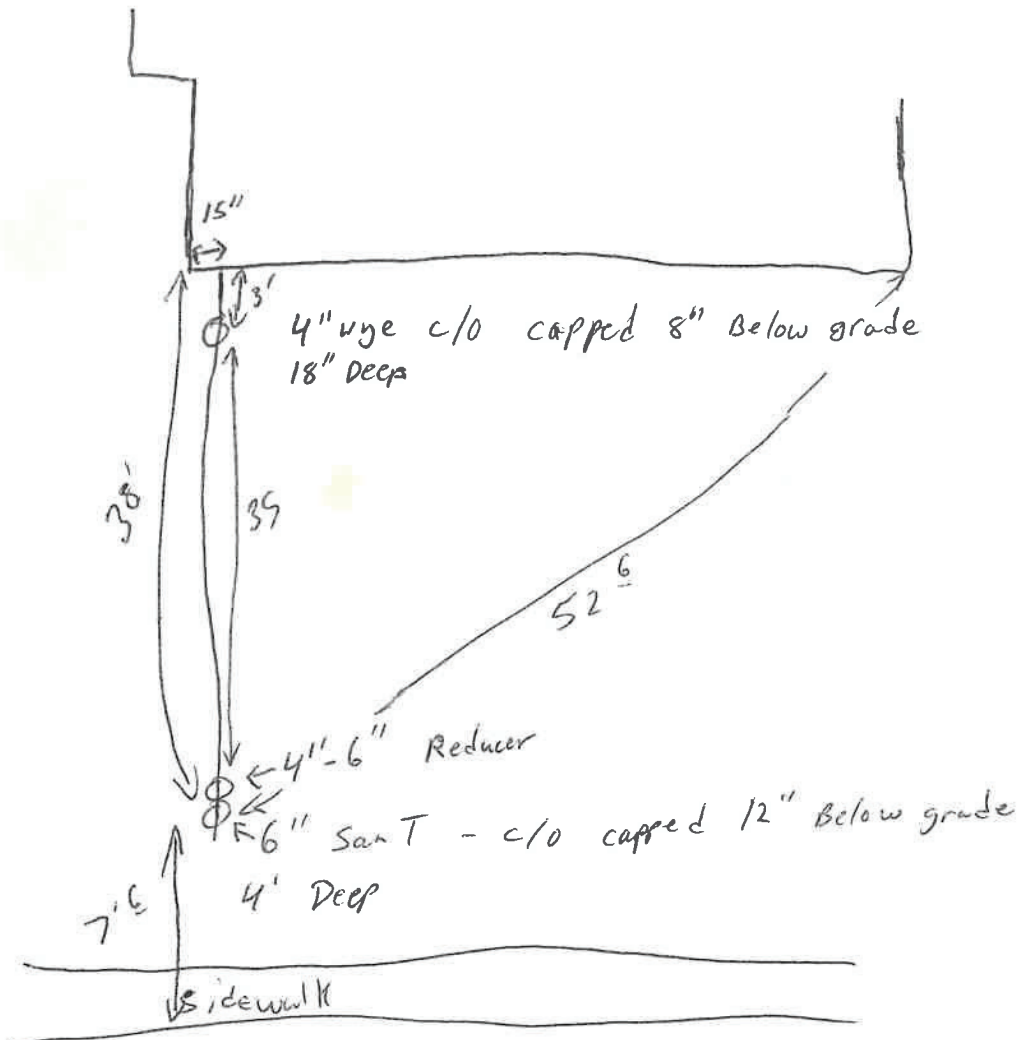 15"
3'
4" wye c/o capped 8" Below grade
18" Deep
38'
35
52 6
4"-6" Reducer
6" San T - c/o capped 12" Below grade
4' Deep
7' 6
Sidewalk